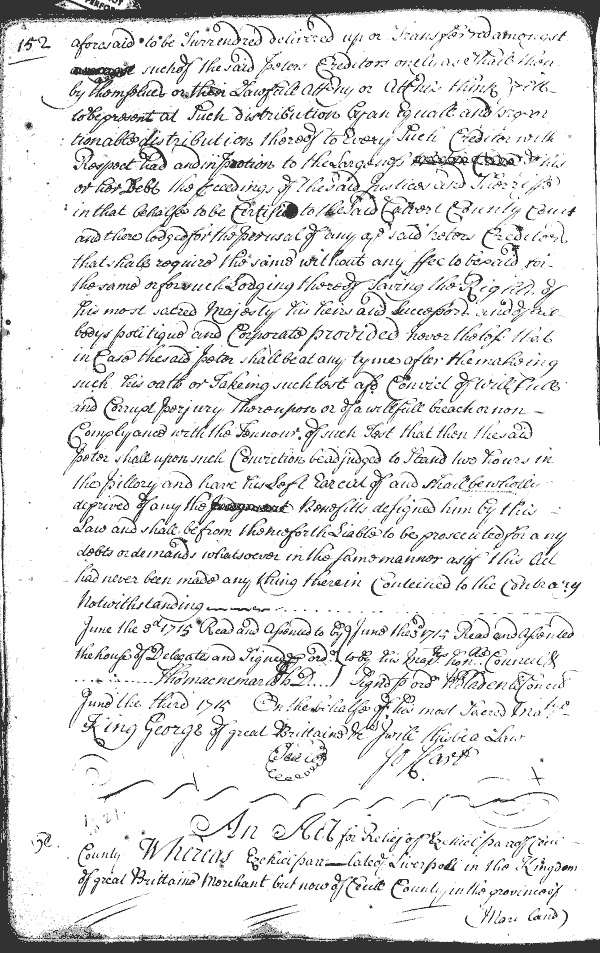 152
aforesaid to be Surrendred delivered up or Transferred amongst
such of the said Peters Creditors onely as shall then
by themselves or their Lawfull Attorny or Attornis think fitt
to be present at Such distribution by an Equall and propor
tionable distribution thereof to Every Such Creditor with
Respect had and in proportion to the Largeness of his
or her Debt the proceedings of the said Justices and Sherriffe
in that behalfe to be Certified to the said Calvert County Court
and there lodged for the perusal of any of said Peters Creditors
that shall require the same without any ffee to be paid for
the same or for such Lodging thereof Saving the Right of
his most sacred Majesty his heirs and Successors and of all
bodys politique and Corporate provided neverthelesse that
in Case the said Peter shall be at any tyme after the makeing
such his oath or Takeing such test afd Convict of willfull
and Corrupt perjury thereupon or of a willfull breach or non
Complyance with the Tennour of such Test that then the said
Peter shall upon such Conviction be adjudged to Stand two hours in
the pillory and have his Left Ear cut of and shall be wholly
deprived of any the Benefitts designed him by this
Law and shall be from thenceforth Liable to be prosecuted for any
debts or demands whatsoever in the same manner as if this Act
had never been made any thing therein Conteined to the Contrary
Notwithstanding
June the 3d 1715 Read and Assented to by June the 3d 1715 Read and Assented
the house of Delegates and Signed p ordr to by his Majtys honble Councell &
Tho macnemara Cl h D Signd p ordr W Bladen Cl Councel
June the third 1715 On the behalfe of his most Sacred Matye
King George of great Brittaine &c I will this be a Law
Jo Hart
An Act for Relief of Ezekiel parr of Cecil
County Whereas Ezekiel parr late of Liverpoll in the Kingdom
of great Brittaine Merchant but now of Cecil County in the province of
(Mariland)